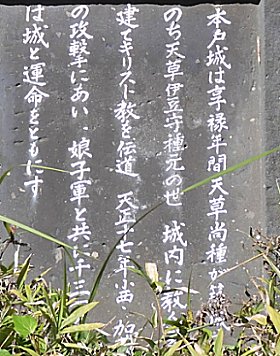 本戸城は享禄年間天草尚種が築城
のち天草伊豆守種元の世 城内に教会
建てキリスト教を伝道 天正十七年小西・加
の攻撃にあい、娘子軍と共に十三
は城と運命をともにす